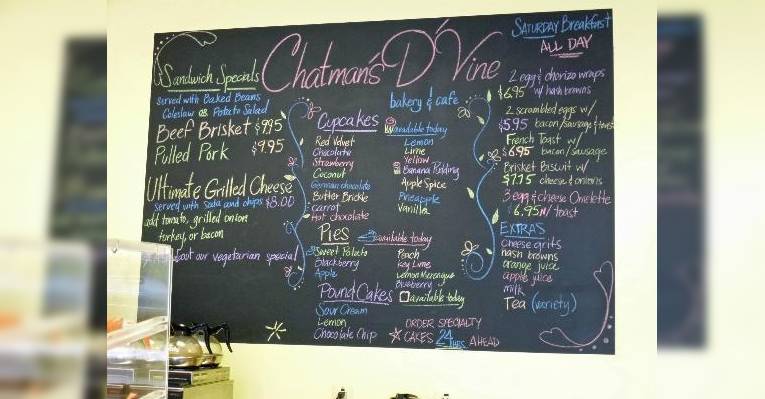 Chatman's D'Vine
bakery & cafe
Sandwich Specials
served with Baked Beans
Coleslaw OR Potato Salad
Beef Brisket $9.95
Pulled Pork $9.95
Ultimate Grilled Cheese
served with Soda and chips $8.00
add tomato, grilled onion
turkey, or bacon
about our vegetarian special
Cupcakes
available today
Red Velvet
Chocolate
Strawberry
Coconut
German chocolate
Butter Brickle
Carrot
Hot chocolate
Lemon
Lime
Yellow
Banana Pudding
Apple Spice
Pineapple
Vanilla
Pies
available today
Sweet Potato
Blackberry
Apple
Peach
Key Lime
Lemon Merengue
Blueberry
Pound Cakes
available today
Sour Cream
Lemon
Chocolate Chip
ORDER SPECIALTY
CAKES 24 HRS AHEAD
SATURDAY Breakfast
ALL DAY
2 egg & chorizo wraps
$6.95 w/ hash browns
2 scrambled eggs w/
$5.95 bacon/sausage & toast
French Toast w/
$6.95 bacon/sausage
Brisket Biscuit w/
$7.75 cheese & onions
3 egg & cheese Omelette
$6.95 w/ toast
EXTRAS
cheese grits
hash browns
orange juice
apple juice
milk
Tea (variety)